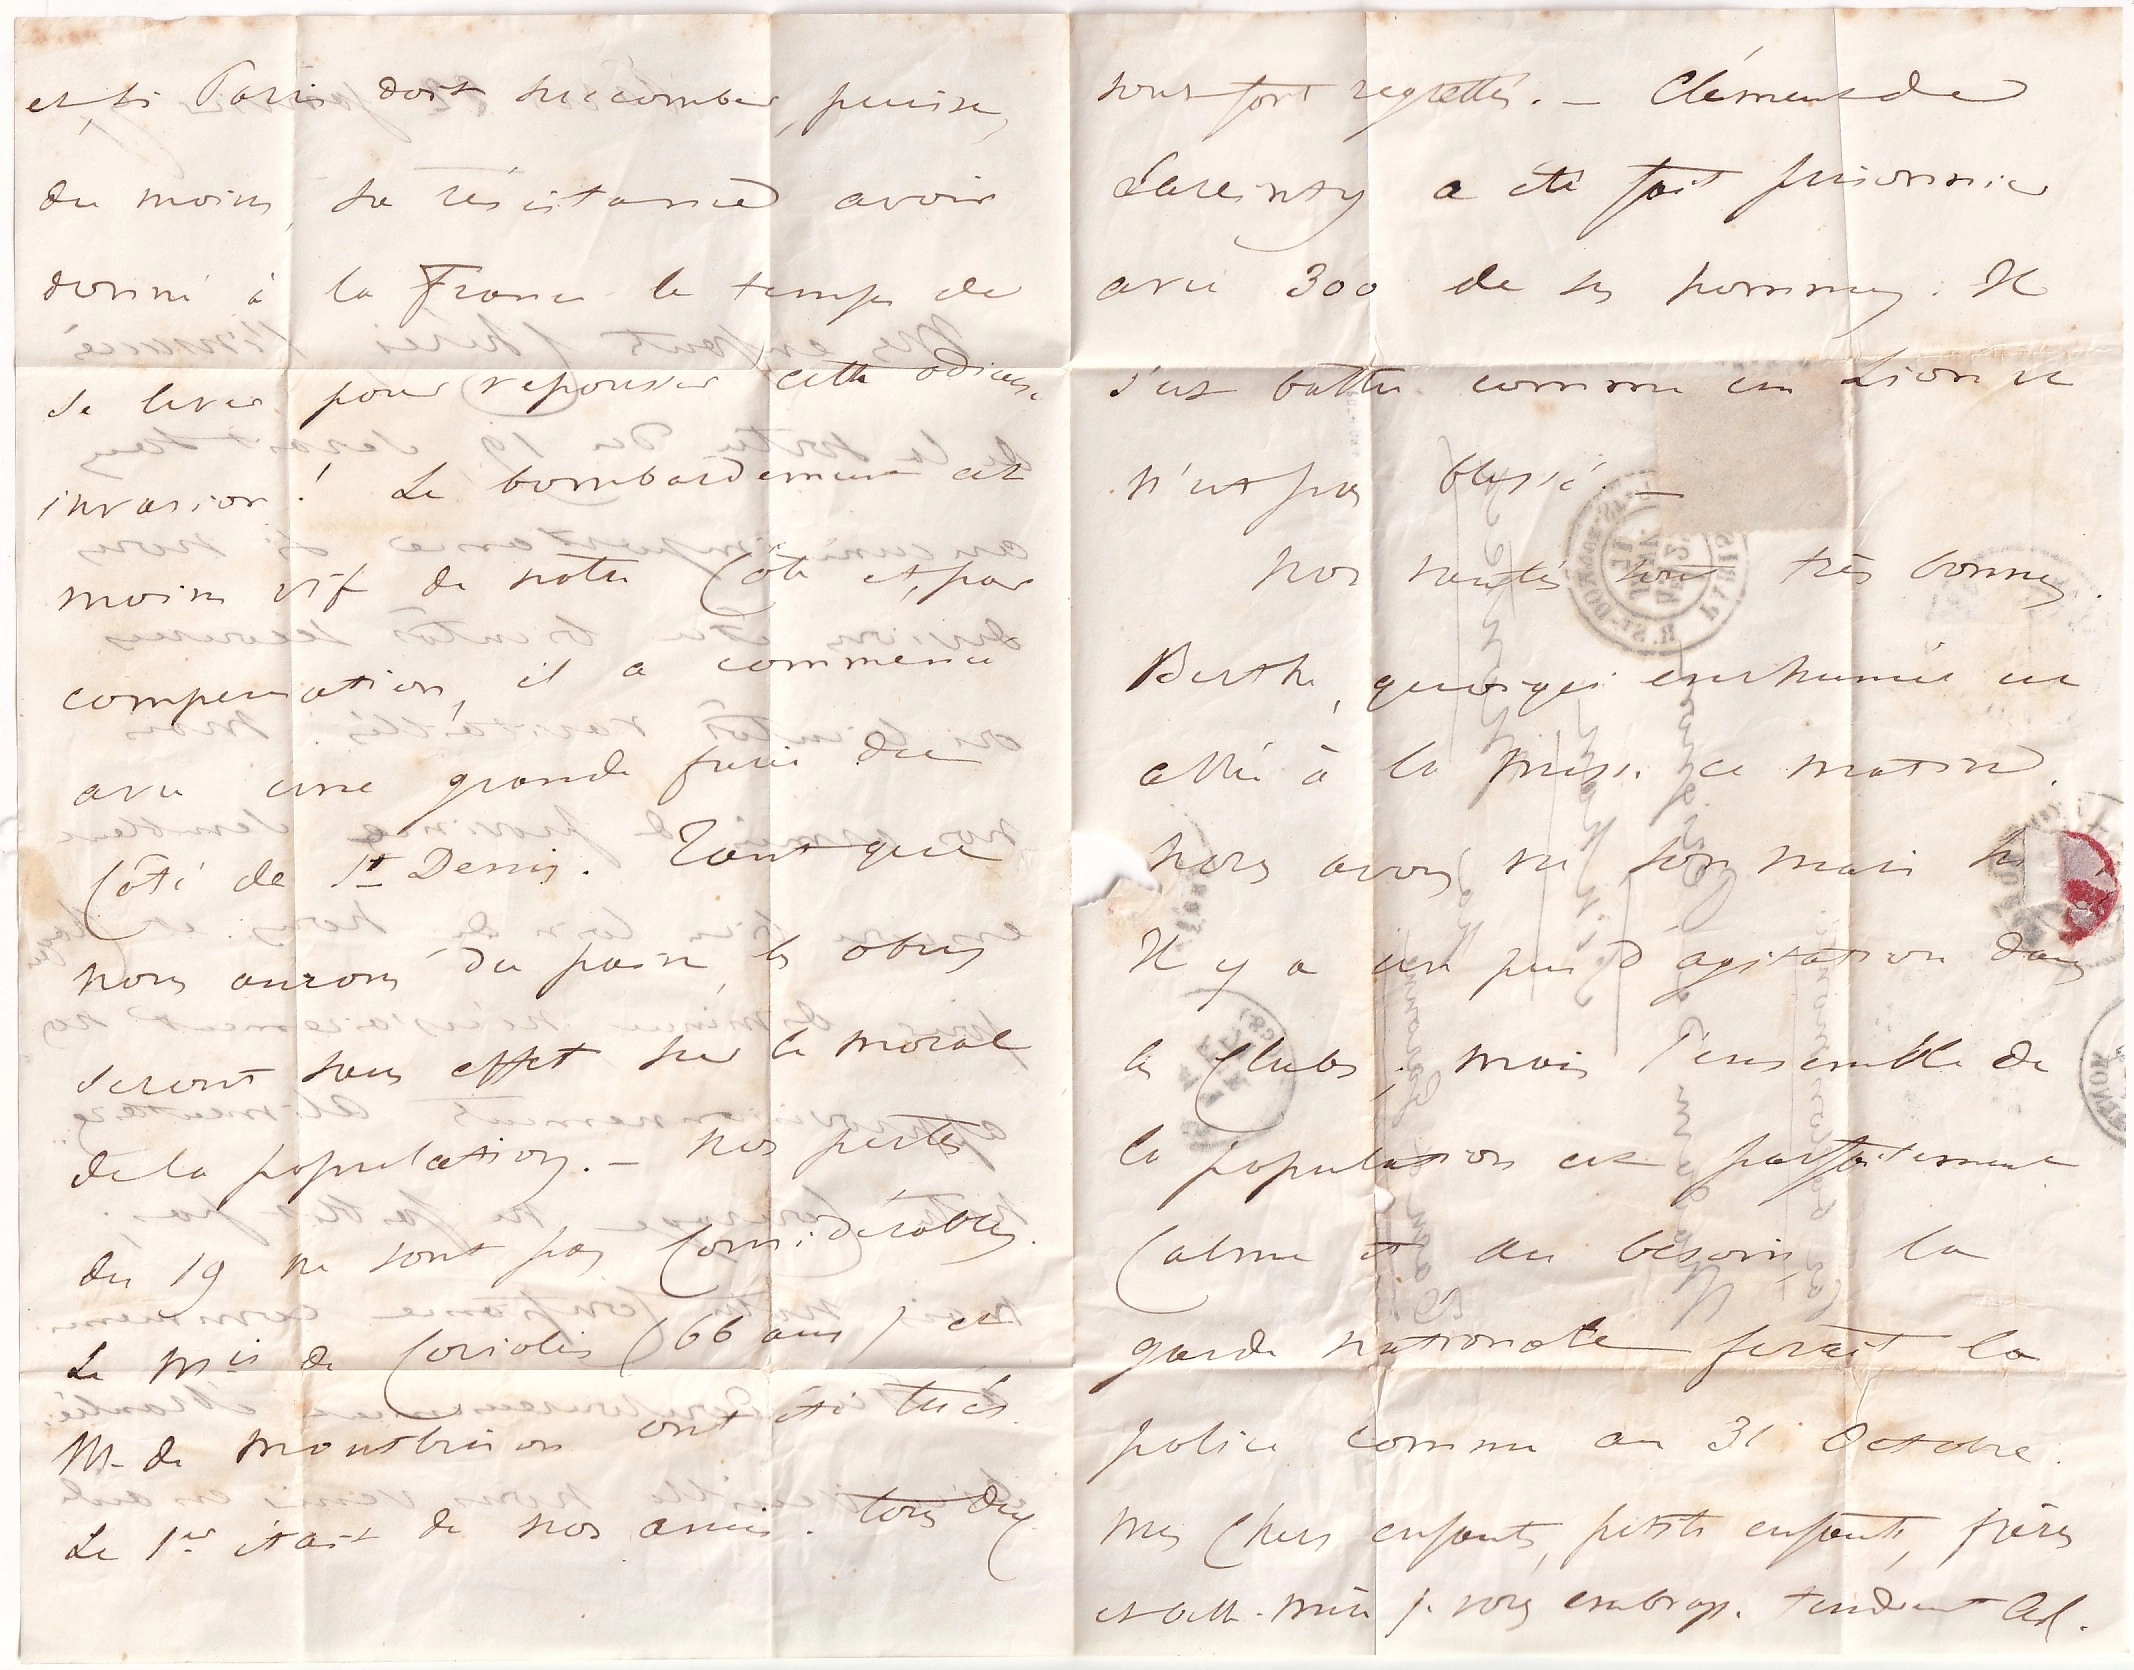 et, si Paris doit succomber, puisse,
du moins, sa résistance avoir
donné à la France le temps de
se lever pour repousser cette odieuse
invasion ! Le bombardement est
moins vif de notre Côté et, par
compensation, il a commencé
avec une grande furie du
Côté de St Denis. Tant que
nous aurons du pain, les obus
seront sans effet sur le moral
de la population. – Nos pertes
du 19 ne sont pas Considérables.
Le Mis de Coriolis (66 ans) et
M. de Montbrison ont été tués.
Le 1er était de nos amis. Tous deux
sont fort regrettés. – Clément de
Lareinty a été fait prisonnier
avec 300 de ses hommes. Il
s'est battu comme un Lion et
n'est pas blessé. –
Nos santés sont très bonnes.
Berthe, quoique enrhumée est
allée à la messe ce matin.
Nous avons vu son mari hier
Il y a un peu d'agitation dans
les Clubs, mais l'ensemble de
la population est parfaitement
Calme et au besoin, la
garde nationale ferait la
police comme au 31 Octobre.
Mes Chers enfants, petits enfants, frères
et belle-mère je vous embrasse tendrement Ad.